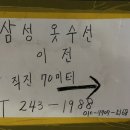 삼성 옷수선
이전
직진 70미터
T 243-1988